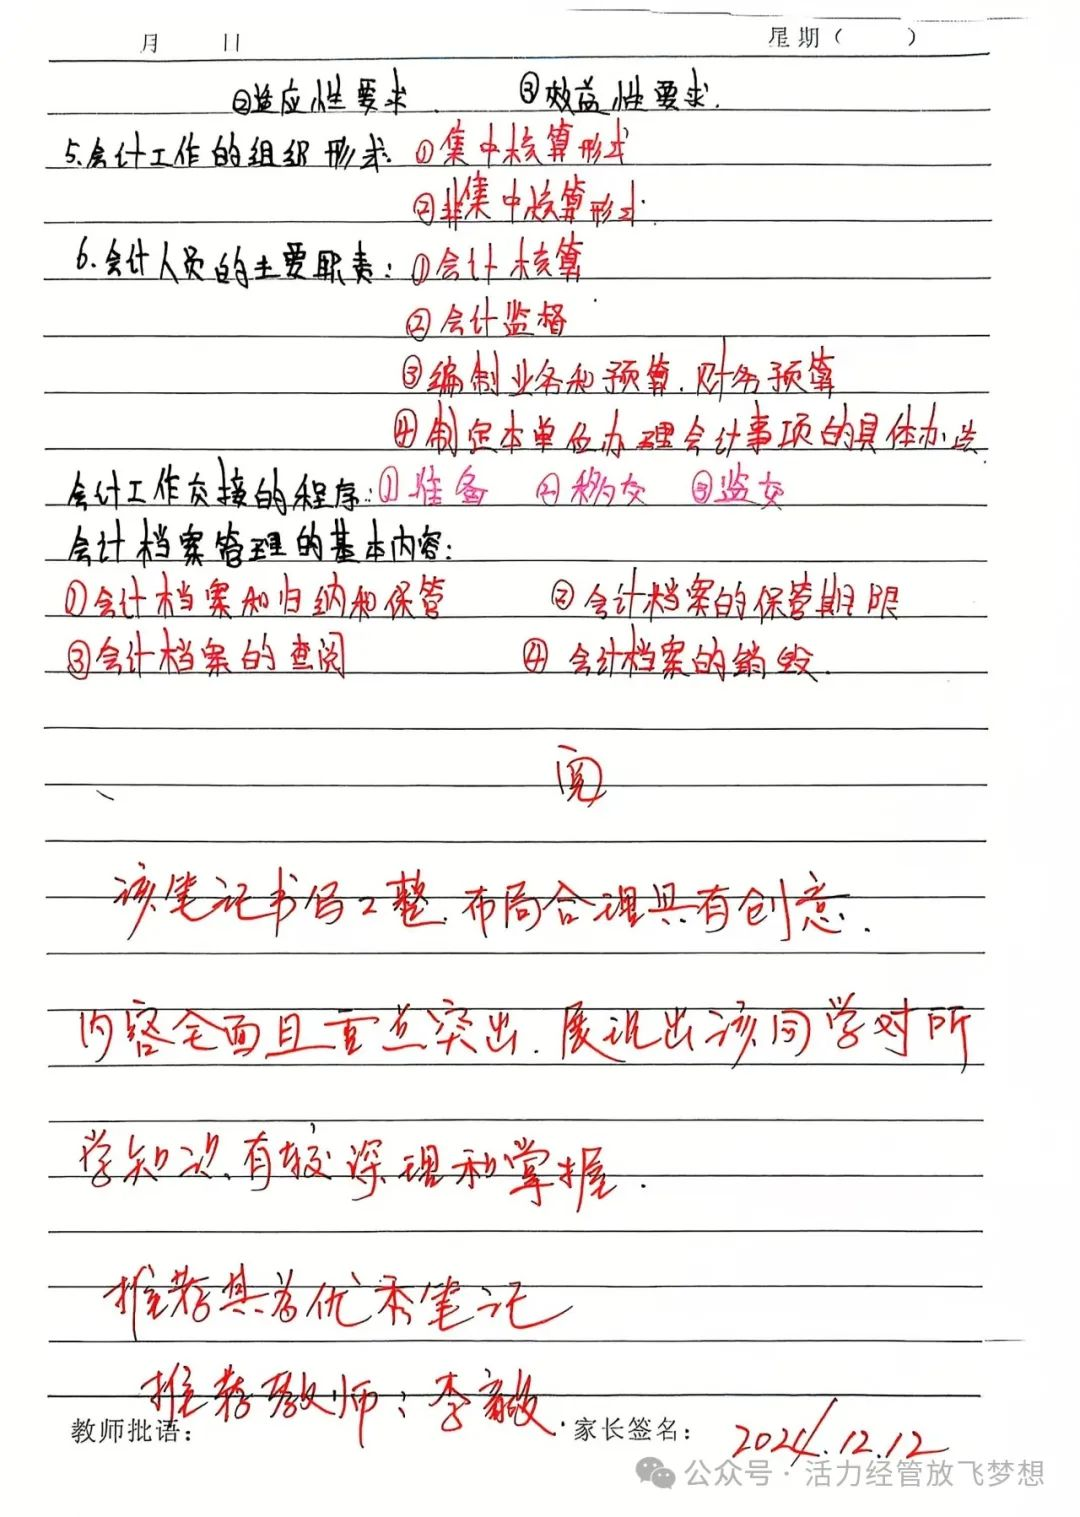 月 日 星期( )
②适应性要求. ③效益性要求.
5.会计工作的组织形式: ①集中核算形式
②非集中核算形式.
6.会计人员的主要职责: ①会计核算
②会计监督
③编制业务和预算.财务预算
④制定本单位办理会计事项的具体办法
会计工作交接的程序:①准备 ②移交 ③监交
会计档案管理的基本内容:
①会计档案和归纳和保管 ②会计档案的保管期限
③会计档案的查阅 ④会计档案的销毁.
阅
该笔记书写工整.布局合理具有创意.
内容全面且重点突出.展现出该同学对所
学知识.有较深理和掌握.
推荐其为优秀笔记
推荐教师:李
教师批语: 家长签名: 2024.12.12
公众号·活力经管放飞梦想